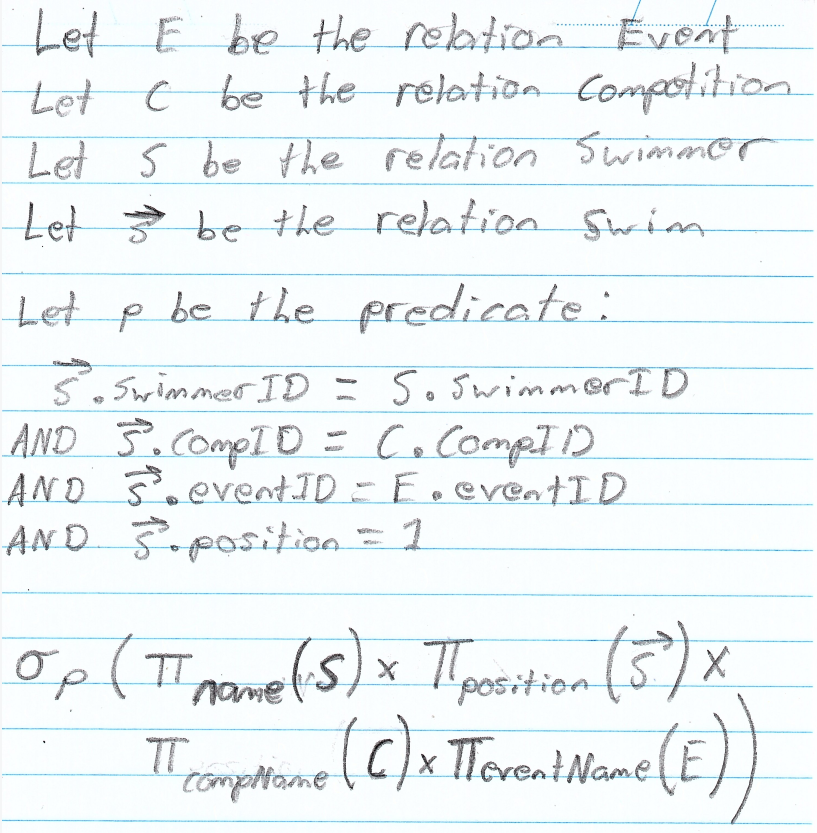 Let E be the relation Event
Let C be the relation Competition
Let S be the relation Swimmer
Let s⃗ be the relation Swim
Let p be the predicate:
s⃗.swimmerID = S.swimmerID
AND s⃗.compID = C.CompID
AND s⃗.eventID = E.eventID
AND s⃗.position = 1
σp (πname(S) × πposition(s⃗) ×
πcompName(C) × πeventName(E))